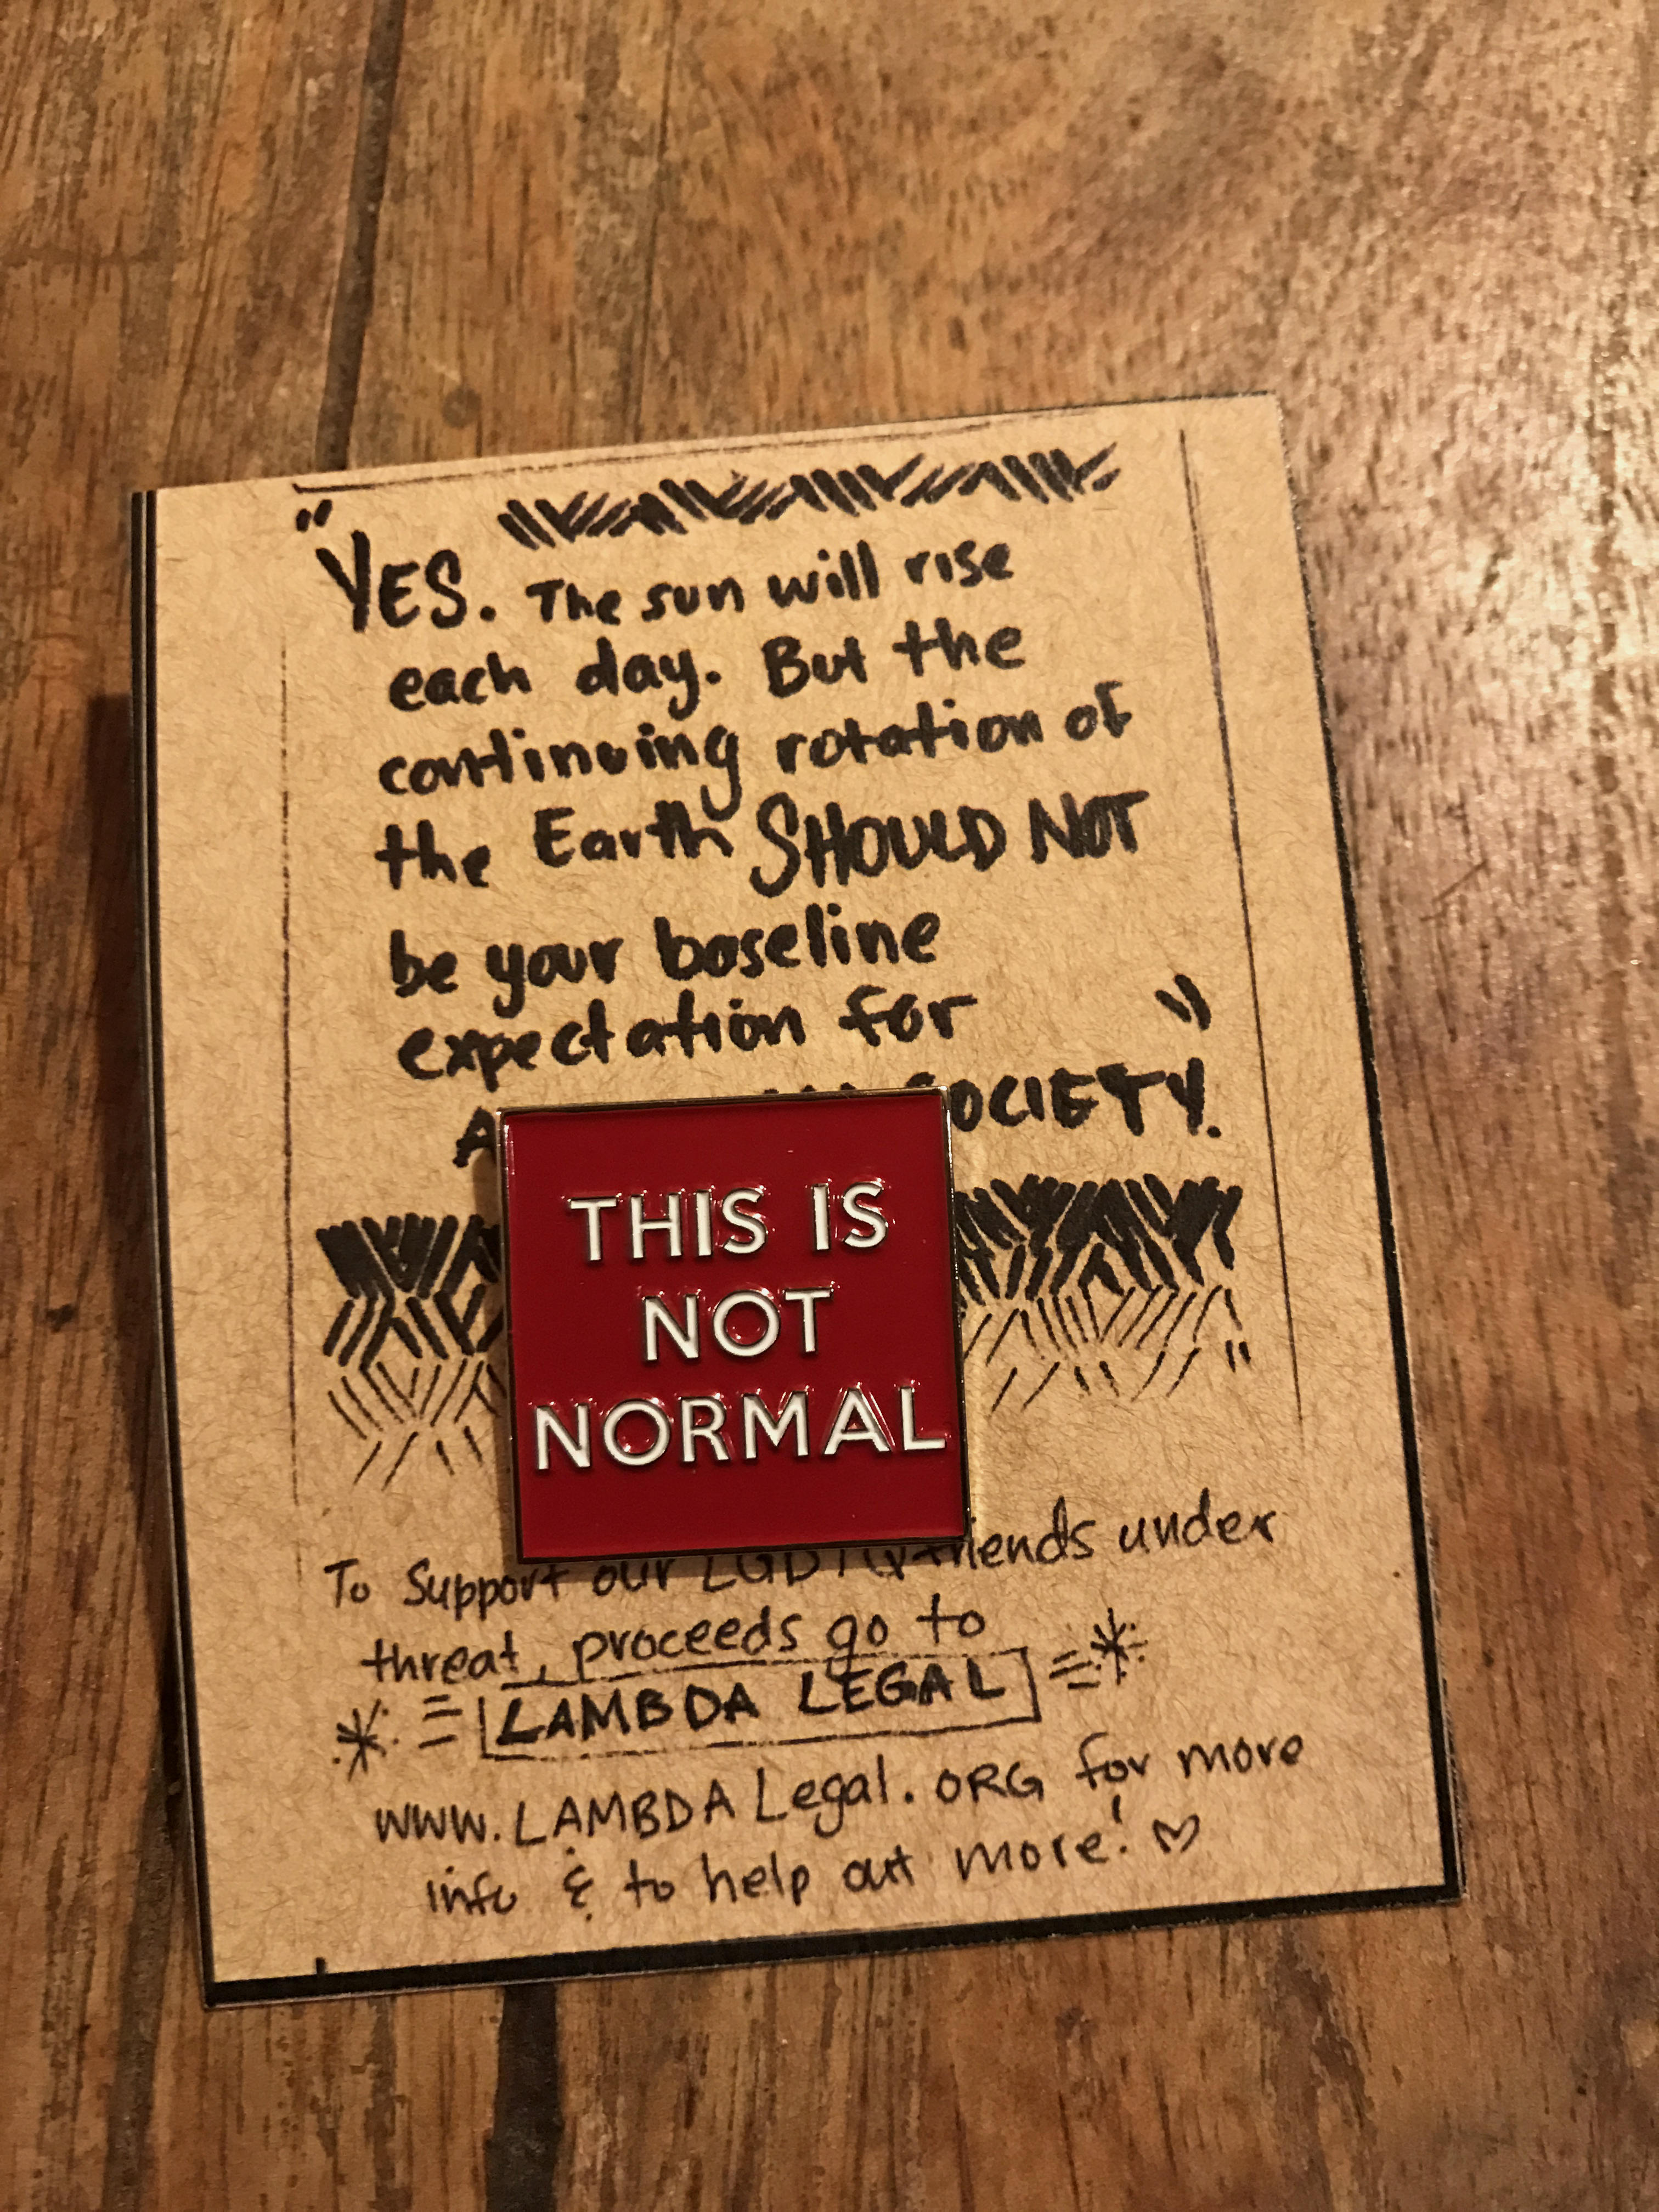 "YES. The sun will rise
each day. But the
continuing rotation of
the Earth SHOULD NOT
be your baseline
expectation for "
SOCIETY.
THIS IS
NOT
NORMAL
"
To Support our LGBTQ friends under
threat, proceeds go to
LAMBDA LEGAL
www.LAMBDALegal.ORG for more
info & to help out more! ♡